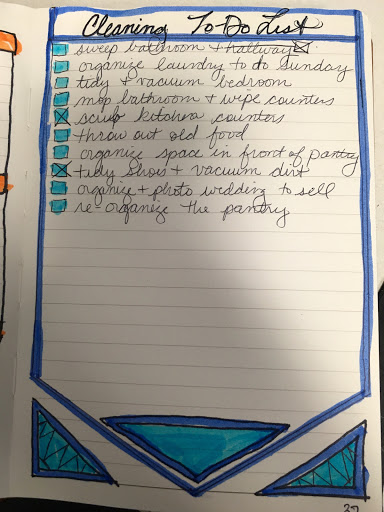 Cleaning To-Do List
sweep bathroom + hallway
organize laundry to do Sunday
tidy + vacuum bedroom
mop bathroom + wipe counters
scrub kitchen counters
throw out old food
organize space in front of pantry
tidy shoes + vacuum dirt
organize + photo wedding to sell
re-organize the pantry